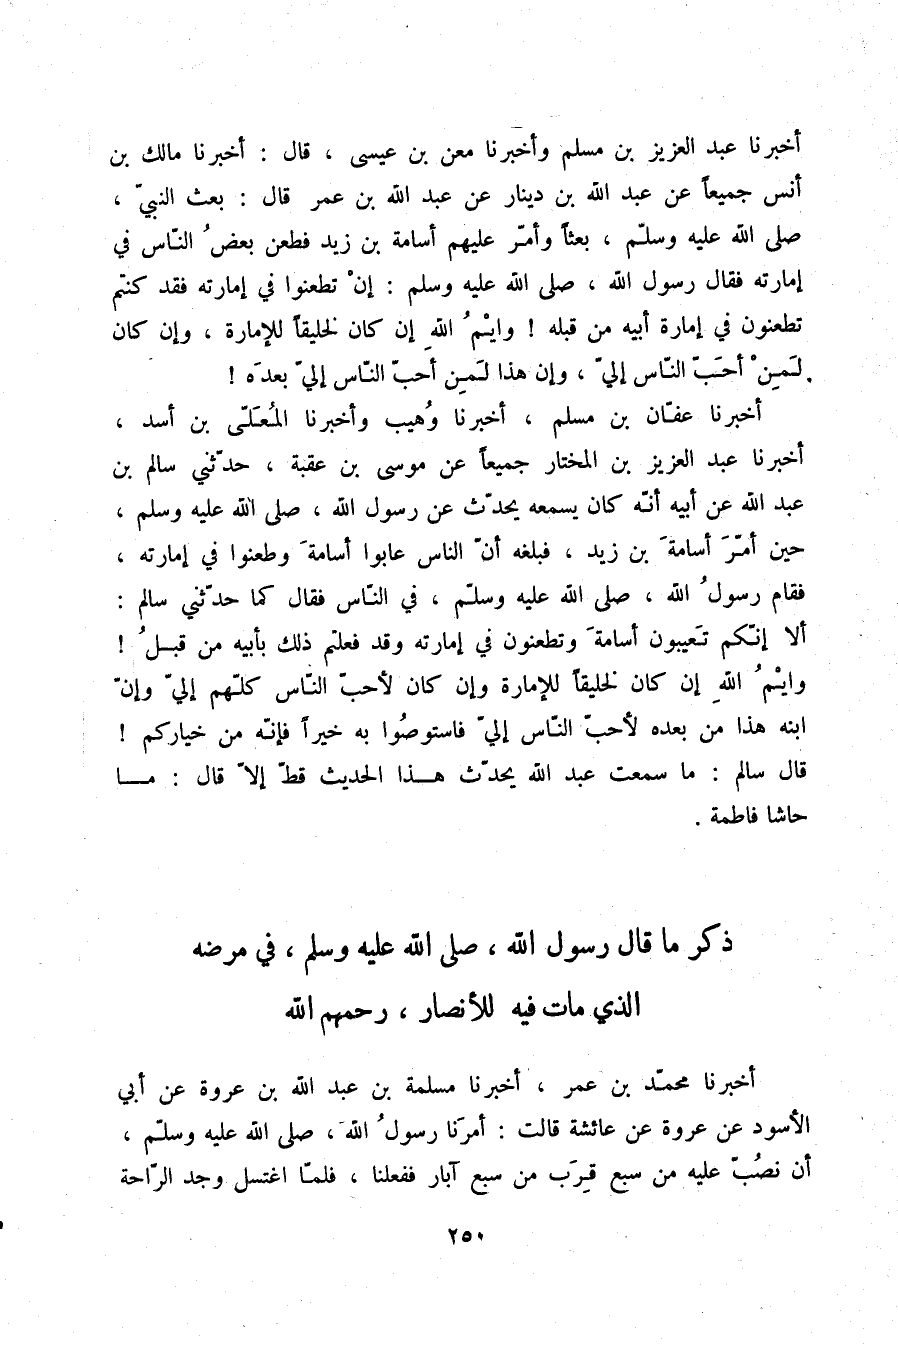 أخبرنا عبد العزيز بن مسلم وأخبرنا معن بن عيسى ، قال : أخبرنا مالك بن
أنس جميعاً عن عبد الله بن دينار عن عبد الله بن عمر قال : بعث النبيّ ،
صلى الله عليه وسلّم ، بعثاً وأمّر عليهم أسامة بن زيد فطعن بعضُ النّاس في
إمارته فقال رسول الله ، صلى الله عليه وسلم : إنْ تطعنوا في إمارته فقد كنتم
تطعنون في إمارة أبيه من قبله ! وايْمُ اللهِ إن كان لخليقاً للإمارة ، وإن كان
لَمِنْ أحَبّ النّاس إليّ ، وإن هذا لَمِن أحبّ النّاس إليّ بعدَه !
أخبرنا عفّان بن مسلم ، أخبرنا وُهيب وأخبرنا المُعَلّى بن أسد ،
أخبرنا عبد العزيز بن المختار جميعاً عن موسى بن عقبة ، حدّثني سالم بن
عبد الله عن أبيه أنّه كان يسمعه يحدّث عن رسول الله ، صلى الله عليه وسلم ،
حين أمّرَ أسامةَ بن زيد ، فبلغه أنّ الناس عابوا أسامةَ وطعنوا في إمارته ،
فقام رسولُ الله ، صلى الله عليه وسلّم ، في النّاس فقال كما حدّثني سالم :
ألا إنّكم تَعيبون أسامةَ وتطعنون في إمارته وقد فعلتم ذلك بأبيه من قبلُ !
وايْمُ اللهِ إن كان لخليقاً للإمارة وإن كان لأحبّ النّاس كلّهم إليّ وإنّ
ابنه هذا من بعده لأحبّ النّاس إليّ فاستوصُوا به خيراً فإنّه من خياركم !
قال سالم : ما سمعت عبد الله يحدّث هذا الحديث قطّ إلاّ قال : ما
حاشا فاطمة .
ذكر ما قال رسول الله ، صلى الله عليه وسلم ، في مرضه
الذي مات فيه للأنصار ، رحمهم الله
أخبرنا محمّد بن عمر ، أخبرنا مسلمة بن عبد الله بن عروة عن أبي
الأسود عن عروة عن عائشة قالت : أمرَنا رسولُ الله ، صلى الله عليه وسلّم ،
أن نصُبّ عليه من سبع قِرَب من سبع آبار ففعلنا ، فلمّا اغتسل وجد الرّاحة
٢٥٠